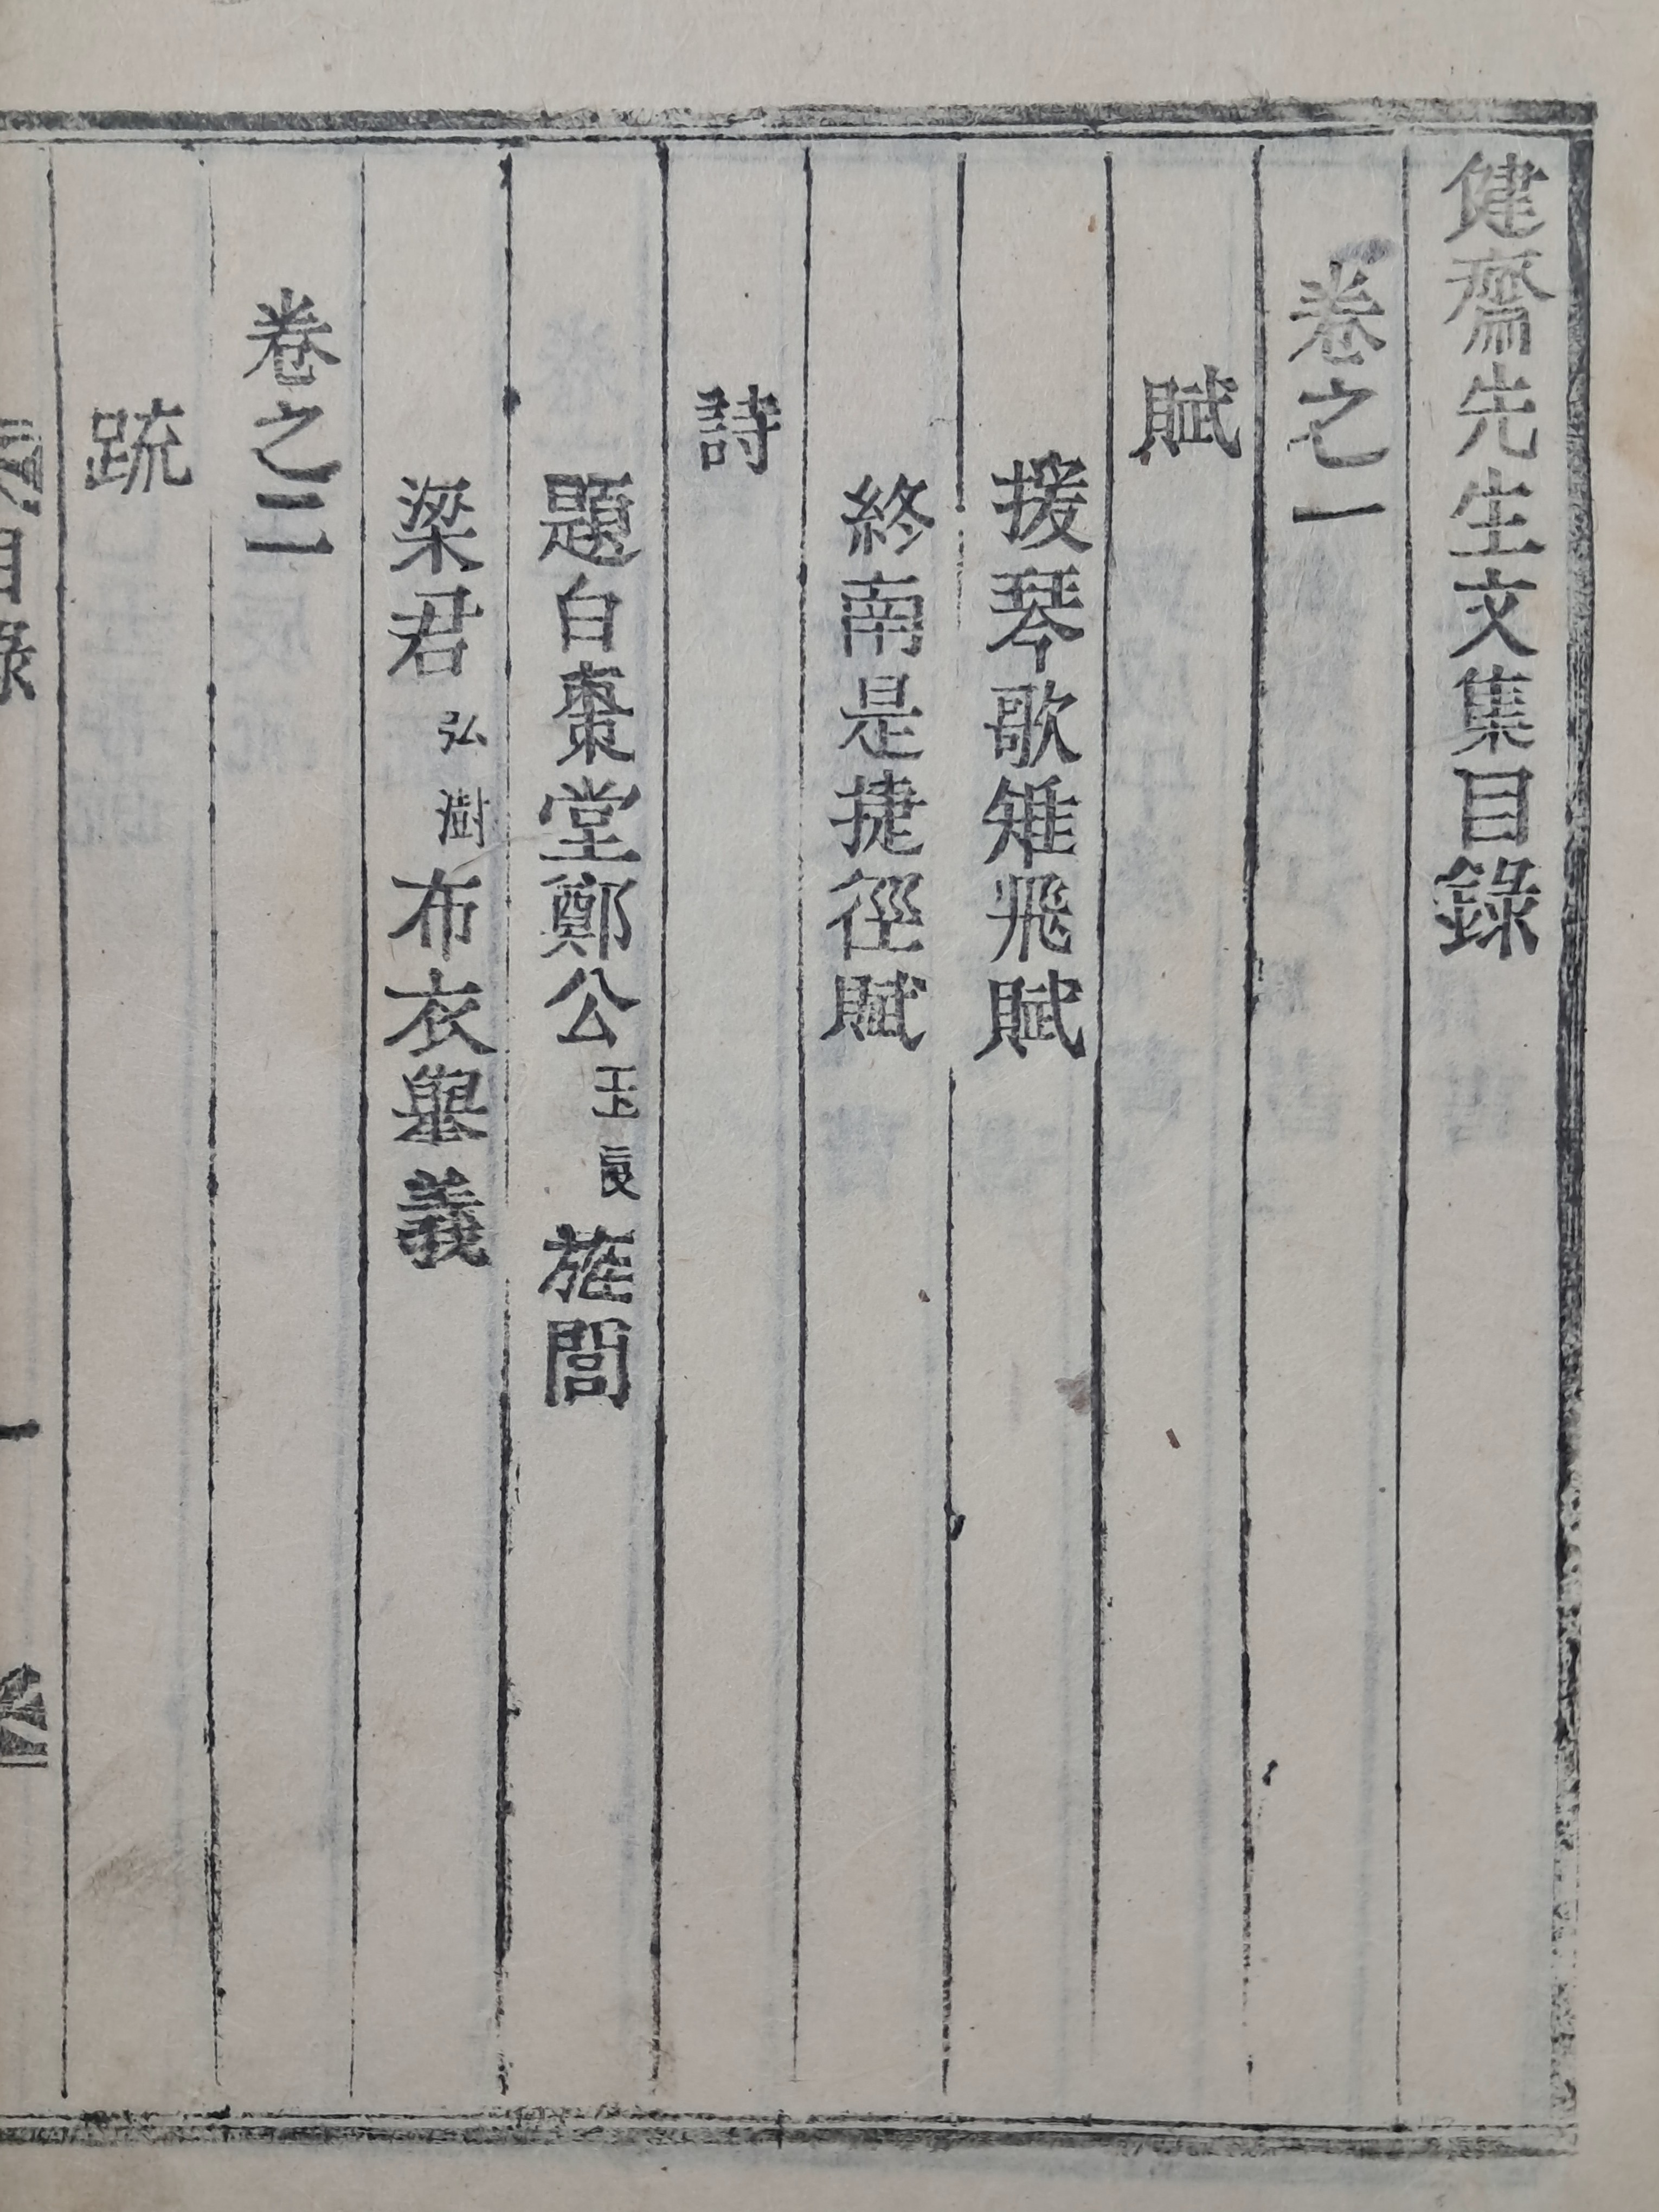 健齋先生文集目錄
卷之一
賦
援琴歌雉飛賦
終南是捷徑賦
詩
題白棗堂鄭公玉良旌閭
梁君弘澍布衣擧義
卷之二
疏
目錄
一